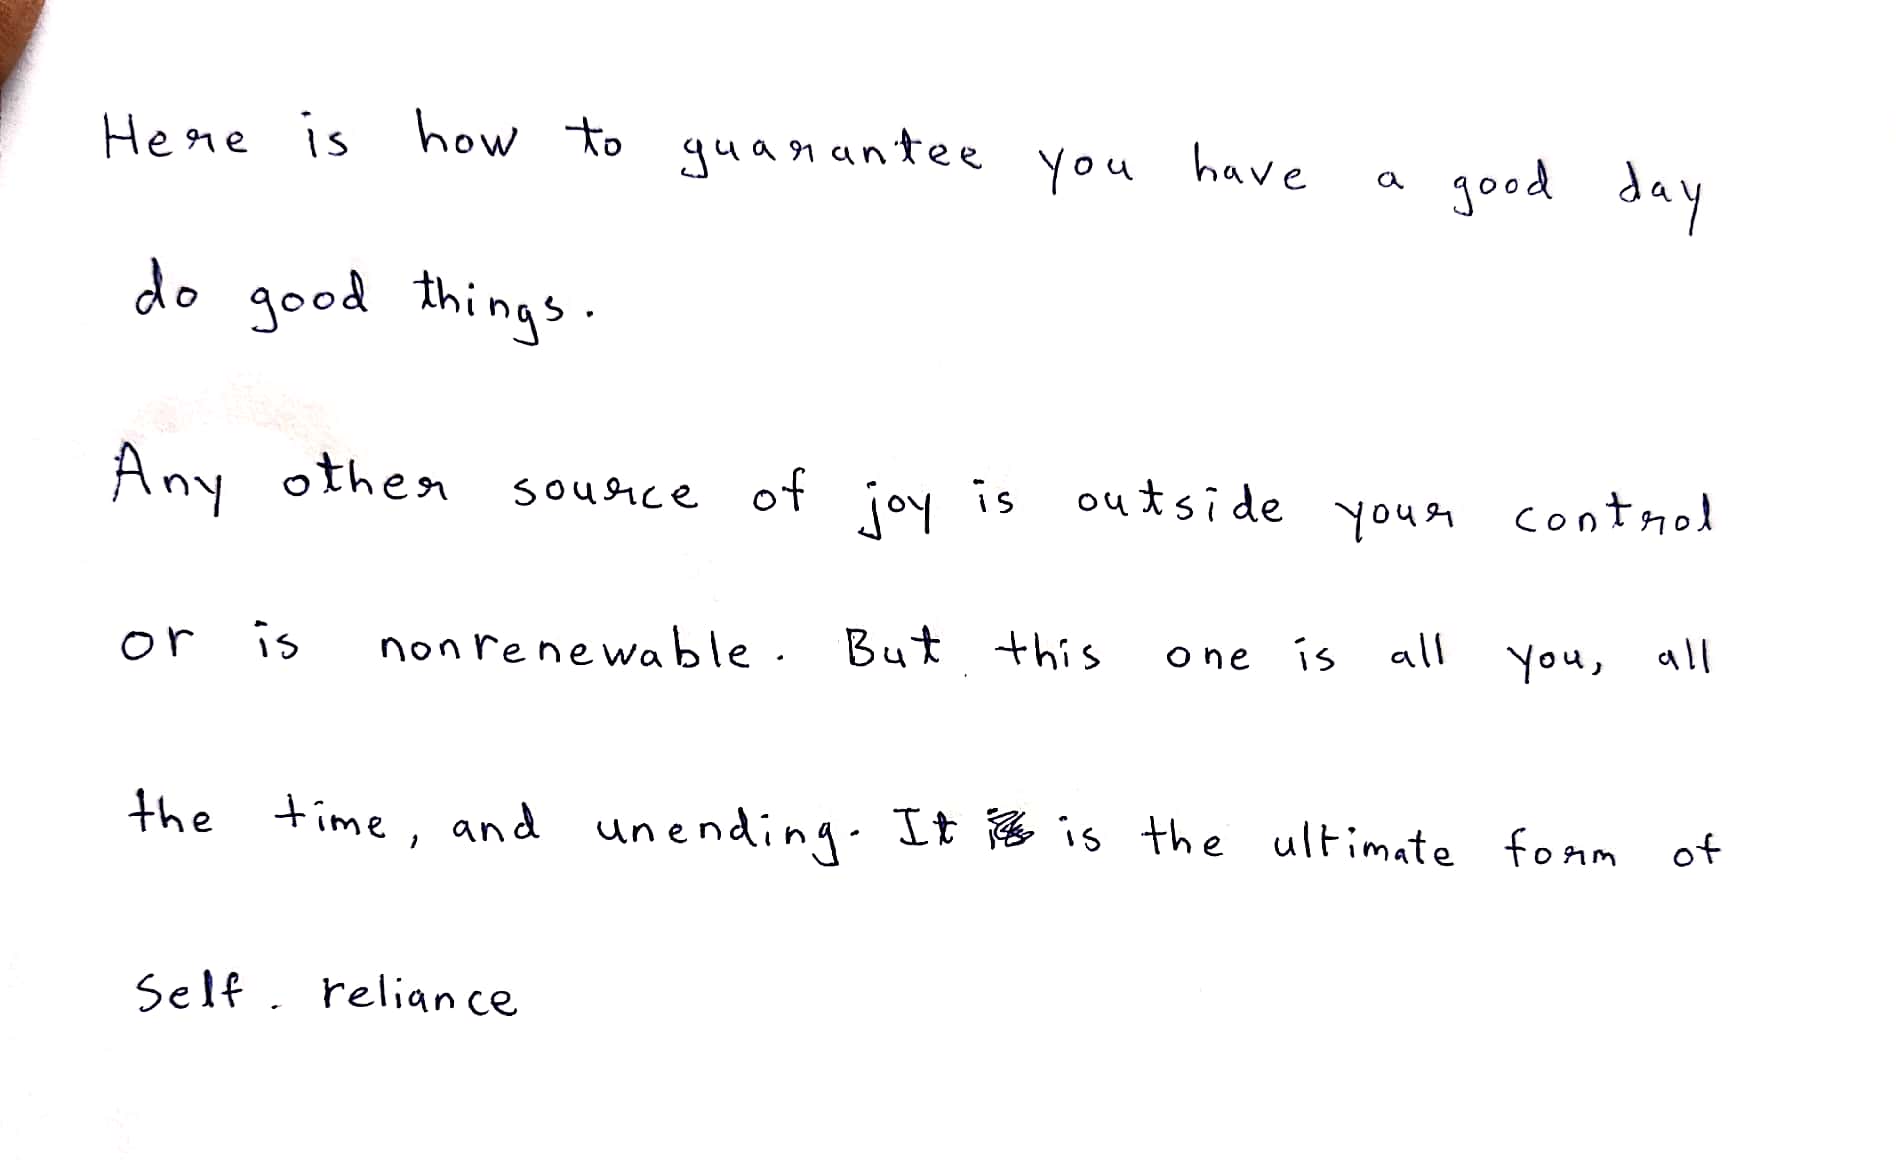 Here is how to guarantee you have a good day
do good things.
Any other source of joy is outside your control
or is nonrenewable. But this one is all you, all
the time, and unending. It is the ultimate form of
Self - reliance